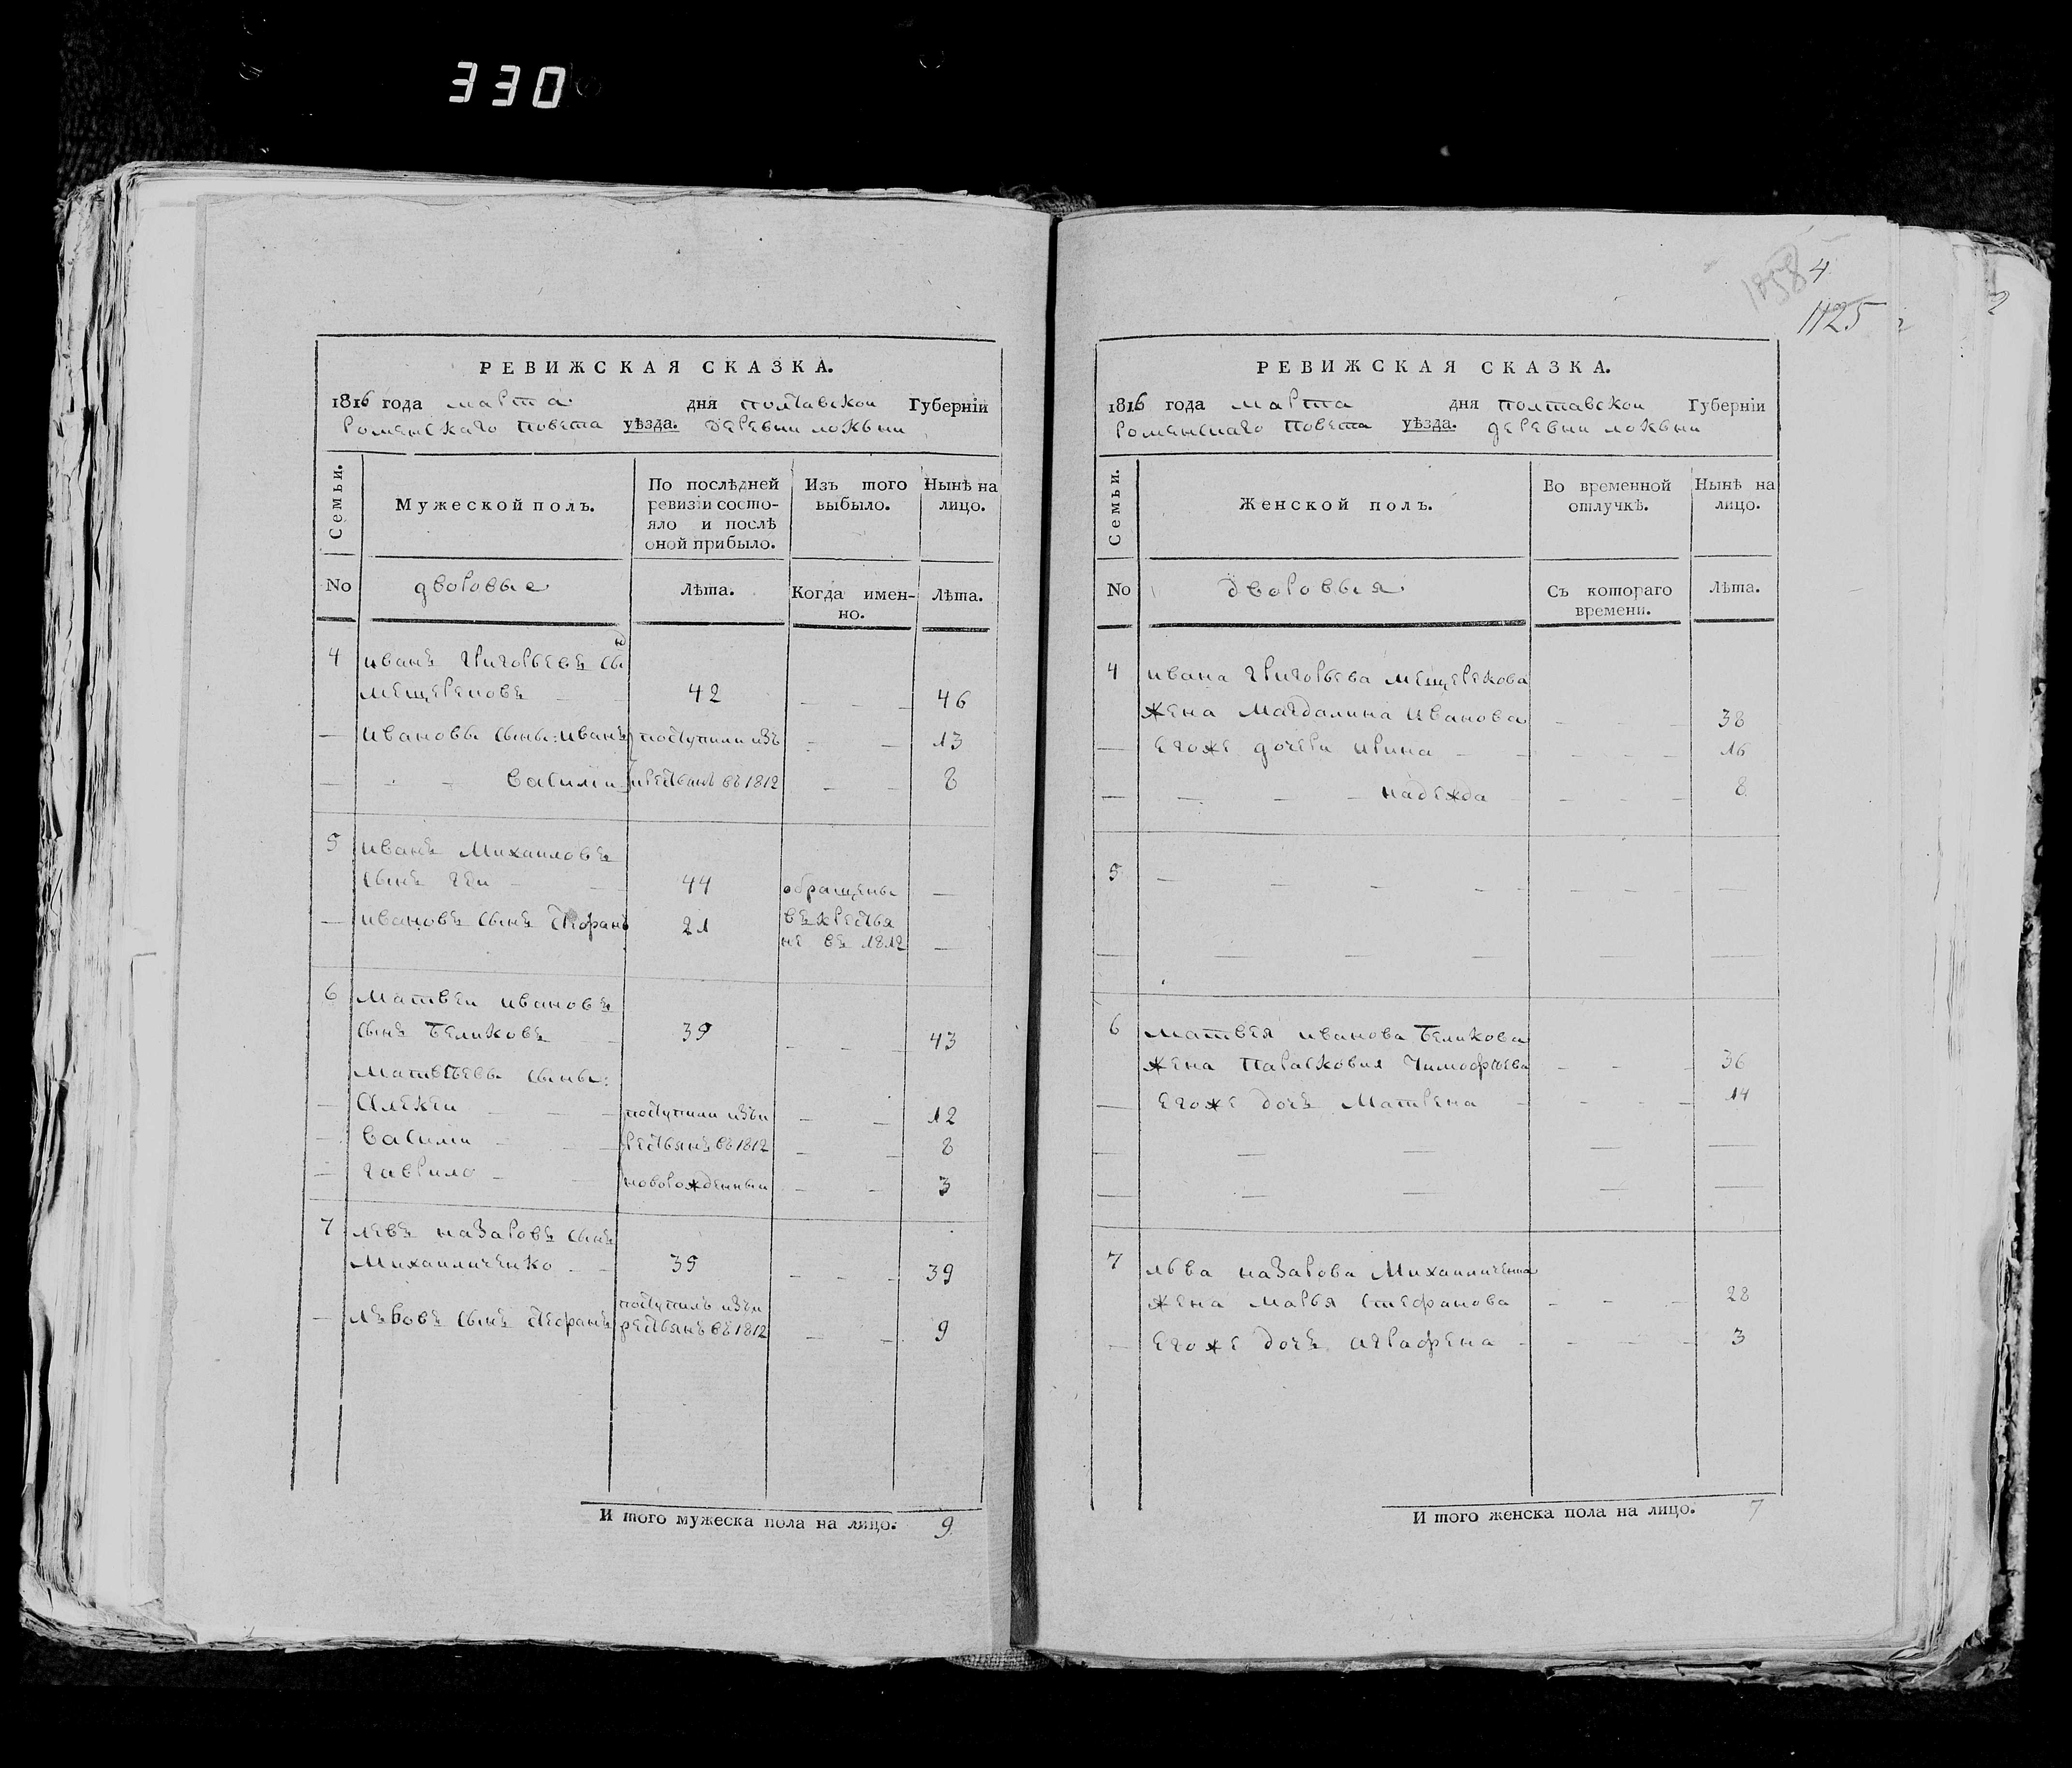 330
РЕВИЖСКАЯ СКАЗКА.
1816 года марта дня полтавской Губерніи
роменскаго повета уѣзда. деревни локъни
Семьи.
Мужеской полъ.
По послѣдней ревизіи состояло и послѣ оной прибыло.
Изъ того выбыло.
Нынѣ на лицо.
No дворовые Лѣта. Когда именно. Лѣта.
4 иванъ григорьевъ сы
мещерековъ 42 46
ивановы сыны: иванъ поступили изъ 13
василии крестьянъ въ 1812 8
5 иванъ михаиловъ
сынъ 44 обращены
ивановъ сынъ стефанъ 21 въ крестья
не въ 1812
6 матвеи ивановъ
сынъ беликовъ 39 43
матвѣевы сыны:
алексеи поступили изъ к 12
василии рестьянъ въ 1812 8
гаврило новорожденныи 3
7 левъ назаровъ сынъ
михаиличенко 35 39
львовъ сынъ стефанъ поступилъ изъ к
рестьянъ въ 1812 9
И того мужеска пола на лицо. 9
1058 4
1125
РЕВИЖСКАЯ СКАЗКА.
1816 года марта дня полтавской Губерніи
роменскаго повета уѣзда. деревни локъни
Семьи.
Женской полъ.
Во временной отлучкѣ.
Нынѣ на лицо.
No дворовыя Съ котораго времени. Лѣта.
4 ивана григорьева мещерекова
жена магдалина иванова 38
егоже дочери ирина 16
надежда 8
5
6 матвея иванова беликова
жена парасковия тимофѣева 36
егоже дочъ матрена 14
7 льва назарова михаиличенка
жена марья стефанова 28
егоже дочъ аграфена 3
И того женска пола на лицо. 7